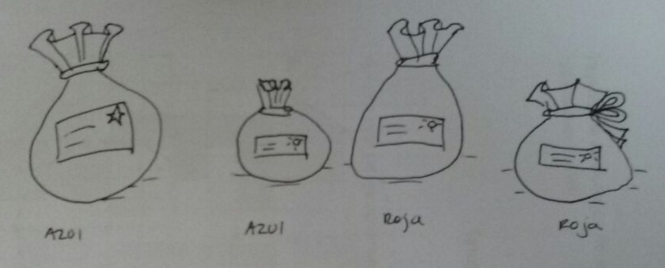 AZUl
AZUl
Roja
Roja